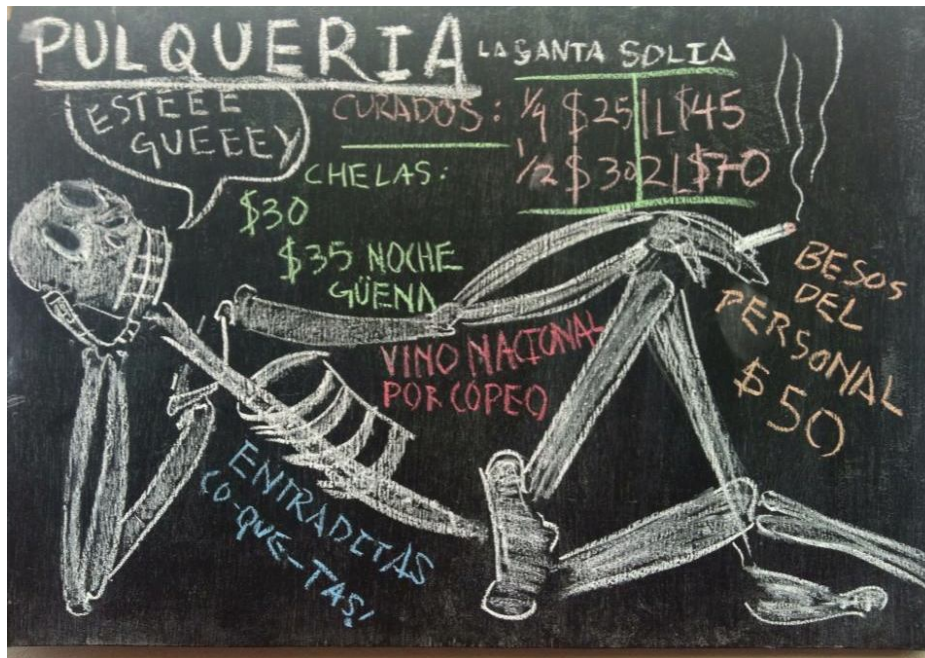 PULQUERIA LA SANTA SOLIA
ESTÉÉÉ
GUEEEY
CURADOS: 1/4 $25 1L $45
1/2 $30 2L $70
CHELAS:
$30
$35 NOCHE
GÜENA
VINO NACIONAL
POR COPEO
BESOS
DEL
PERSONAL
$50
ENTRADITAS
CO-QUE-TAS!